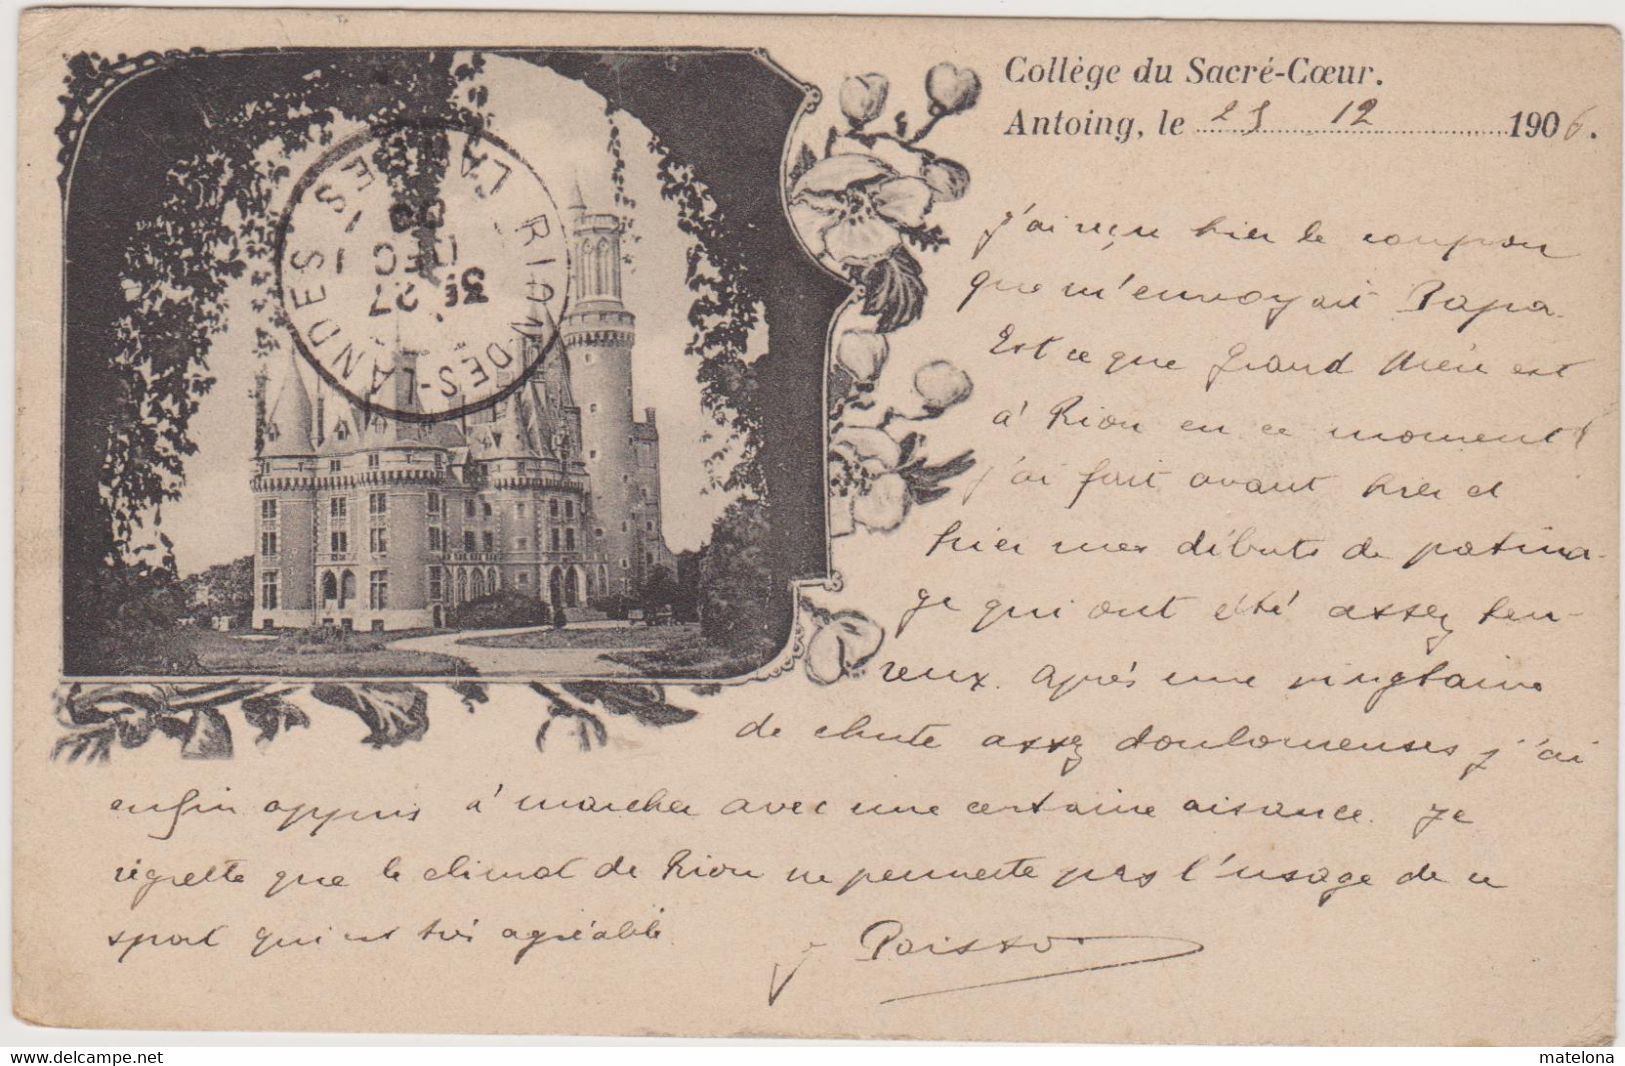 Collège du Sacré-Cœur.
Antoing, le 25 12 1906.
RION-DES-LANDES
LANDES
27
DEC
06
j'ai reçu hier le coupon
que m'envoyait Papa.
Est ce que Grand Mère est
à Rion en ce moment
j'ai fait avant hier et
hier mes débuts de patina-
ge qui ont été assez heu-
reux. après une vingtaine
de chute assez douloureuses j'ai
enfin appris à marcher avec une certaine aisance. Je
régrette que le climat de Rion ne permette pas l'usage de ce
sport qui est très agréable
matelona